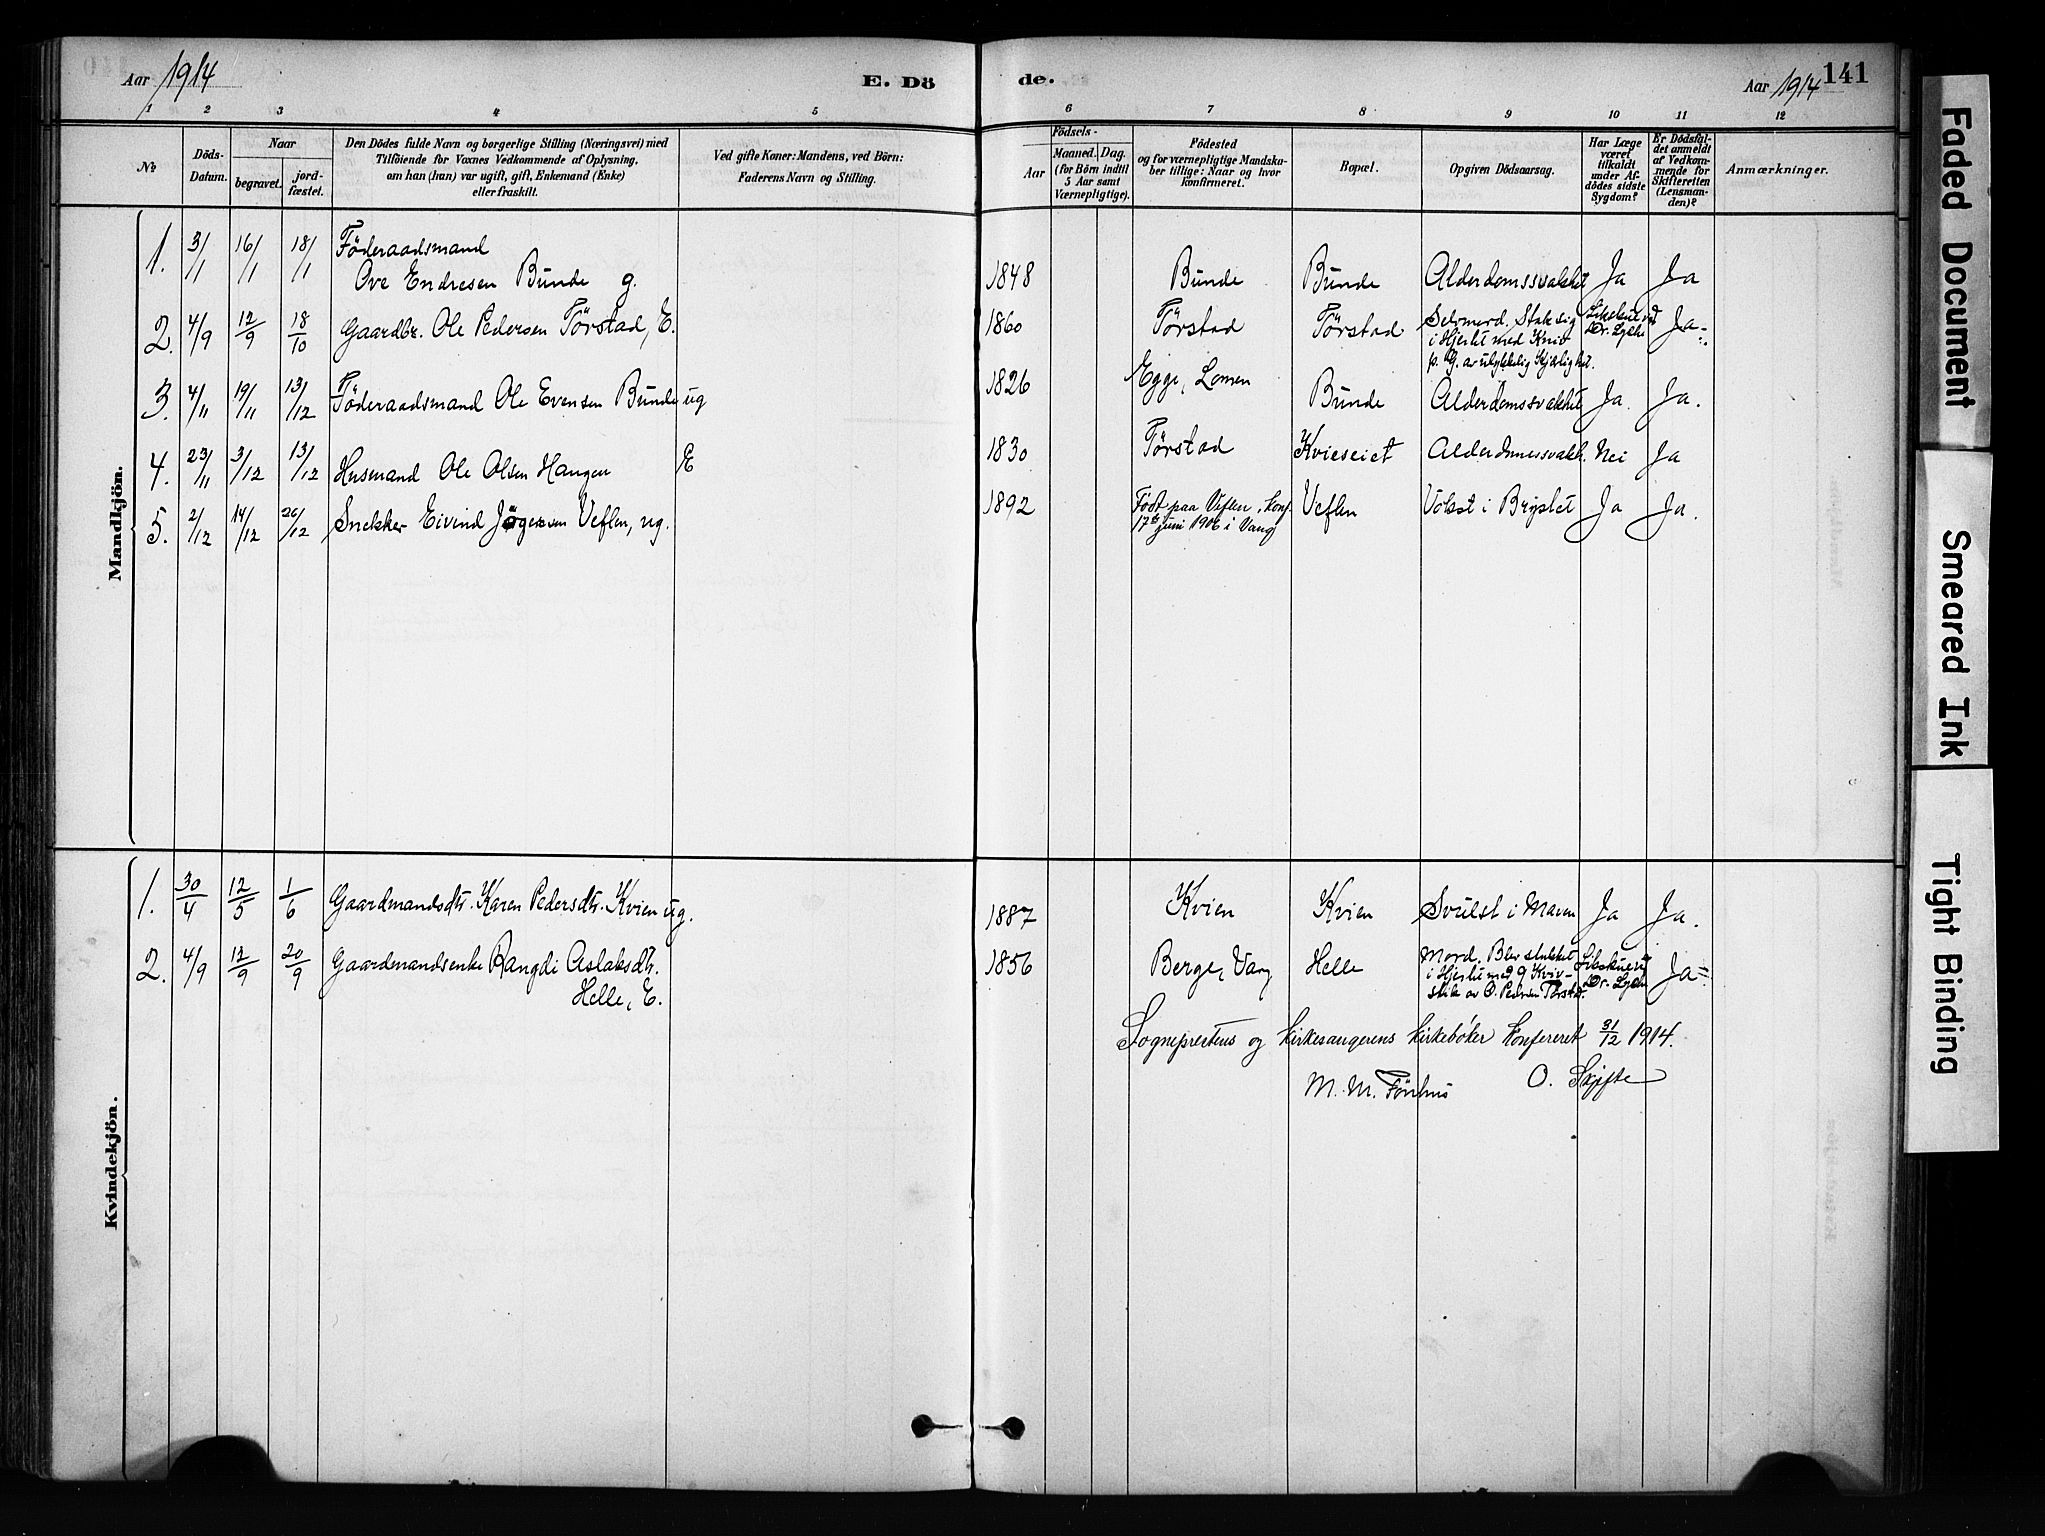 Aar 1914
E. Dö
de.
Aar 1914
141
1 2 3 4 5 6 7 8 9 10 11 12
No
Döds-
Datum.
Naar
begravet.
jord-
fæstet.
Den Dödes fulde Navn og borgerlige Stilling (Næringsvei) med
Tilföiende for Voxnes Vedkommende af Oplysning,
om han (hun) var ugift, gift, Enkemand (Enke)
eller fraskilt.
Ved gifte Koner: Mandens, ved Börn:
Faderens Navn og Stilling.
Födsels-
Aar
Maaned. Dag.
(for Börn indtil
5 Aar samt
Værnepligtige).
Födested
og for værnepligtige Mandska-
ber tillige: Naar og hvor
konfirmeret.
Bopæl.
Opgiven Dödsaarsag.
Har Læge
været
tilkaldt
under Af-
dödes sidste
Sygdom?
Er Dödsfal-
det anmeldt
af Vedkom-
mende for
Skifteretten
(Lensman-
den)?
Anmærkninger.
Mandkjön.
1. 3/1 16/1 18/1 Föderaadsmand
Ove Endresen Bunde g. 1848 Bunde Bunde Alderdomssvakhet Ja Ja
2. 4/9 12/9 18/10 Gaardbr. Ole Pedersen Tørstad, E. 1860 Tørstad Tørstad Selvmord. Stak sig Dr. Ja
i Hjertet med Kniv
p. G. av ulykkelig Kjærlighet.
3. 4/11 19/11 13/12 Föderaadsmand Ole Evensen Bunde ug 1826 Egge, Lomen Bunde Alderdomssvakhet Ja. Ja.
4. 23/11 3/12 13/12 Husmand Ole Olsen Haugen E 1830 Tørstad Kvieseiet Alderdomssvakh. Nei Ja
5. 2/12 14/12 26/12 Snekker Eivind Jørgensen Veflen, ug. 1892 Født paa Veflen, konf. Veflen Vækst i Brystet Ja Ja.
17de juni 1906 i Vang
Kvindekjön.
1. 30/4 12/5 1/6 Gaardmandsdtr. Karen Pedersdtr. Kvien ug. 1887 Kvien Kvien Svulst i Maven Ja Ja.
2. 4/9 12/9 20/9 Gaardmandsenke Rangdi Aslaksdtr. 1856 Berge, Vang Helle Mord. Blev stukket Ja
Helle, E. i Hjertet med 9 Kniv- Dr.
stik av O. Pedersen Tørstad.
Sogneprestens og Kirkesangerens Kirkebøker Konfereret 31/12 1914.
M. M. Fønhus O. Skjefte
Faded Document
Smeared Ink
Tight Binding